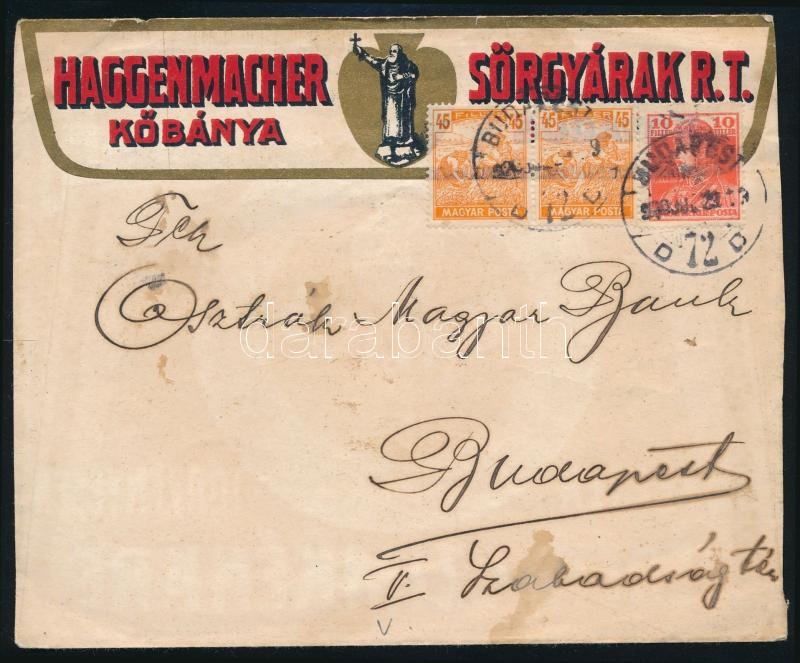 HAGGENMACHER SÖRGYÁRAK R.T.
KŐBÁNYA
45 45 45 45 10 10
MAGYAR POSTA MAGYAR POSTA
BUDAPEST BUDAPEST
72 72
D D
Osztrák-Magyar Bank
darabanth
Budapest
V. Szabadság tér
V.